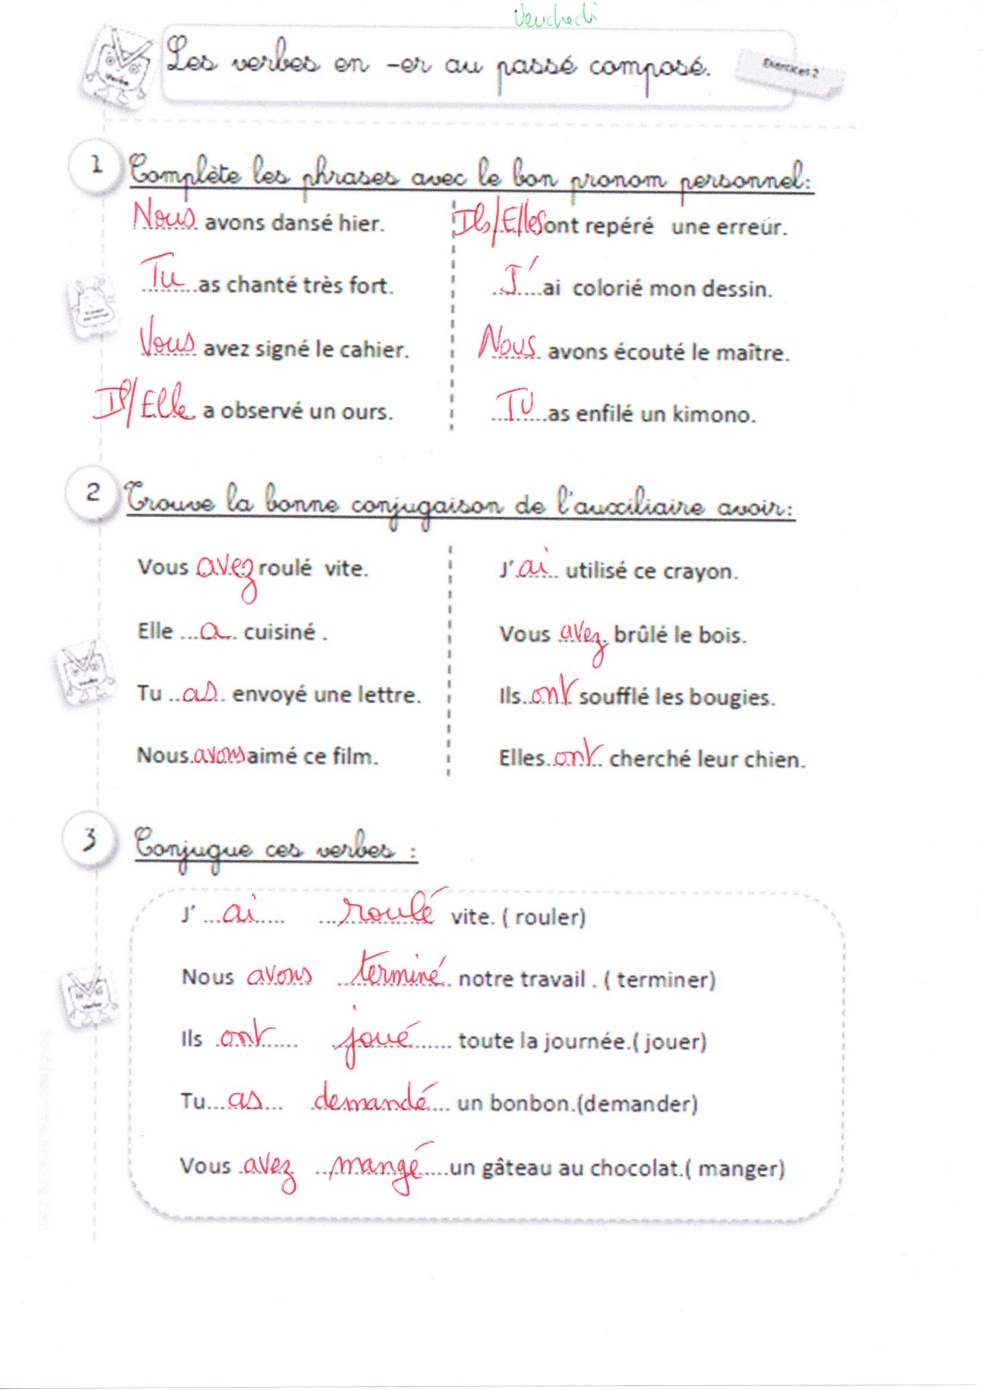 Vendredi
Les verbes en -er au passé composé.
Exercices 2
1 Complète les phrases avec le bon pronom personnel:
Nous avons dansé hier.
Tu as chanté très fort.
Vous avez signé le cahier.
Il/Elle a observé un ours.
Ils/Elles ont repéré une erreur.
J'ai colorié mon dessin.
Nous avons écouté le maître.
Tu as enfilé un kimono.
2 Trouve la bonne conjugaison de l'auxiliaire avoir:
Vous avez roulé vite.
Elle ...a.. cuisiné .
Tu ..as.. envoyé une lettre.
Nous.avons aimé ce film.
J'.ai.. utilisé ce crayon.
Vous avez brûlé le bois.
Ils..ont soufflé les bougies.
Elles..ont.. cherché leur chien.
3 Conjugue ces verbes :
J' ...ai..... ...roulé vite. ( rouler)
Nous avons terminé. notre travail . ( terminer)
Ils .ont..... joué....... toute la journée.( jouer)
Tu...as... demandé... un bonbon.(demander)
Vous .avez ..mangé....un gâteau au chocolat.( manger)